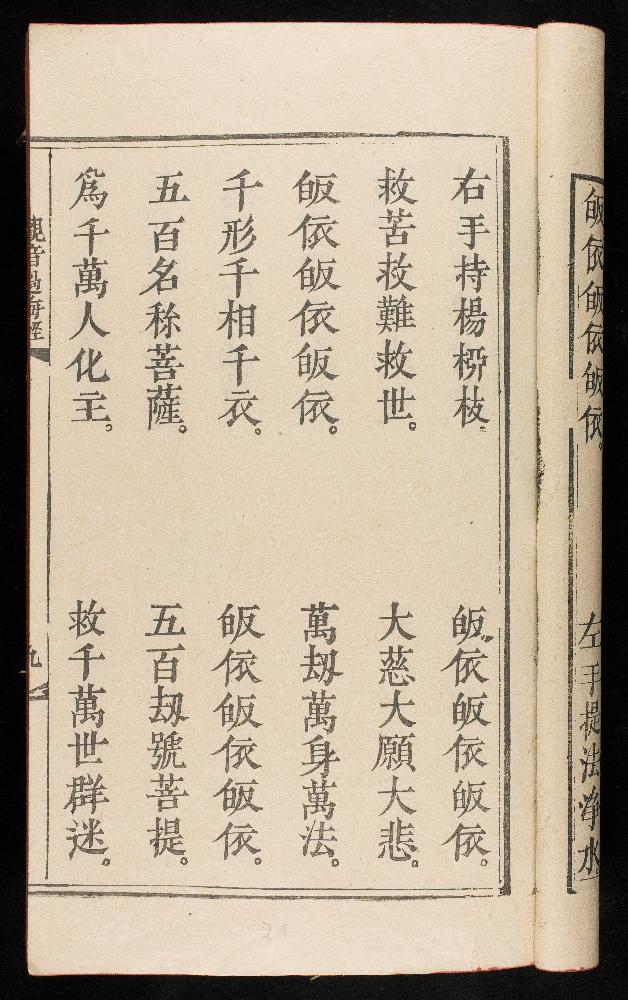 皈依皈依皈依。 左手提法淨水
右手持楊栁枝。 皈依皈依皈依。
救苦救難救世。 大慈大願大悲。
皈依皈依皈依。 萬刼萬身萬法。
千形千相千衣。 皈依皈依皈依。
五百名称菩薩。 五百刼號菩提。
爲千萬人化主。 救千萬世群迷。
觀音過海經 九
21